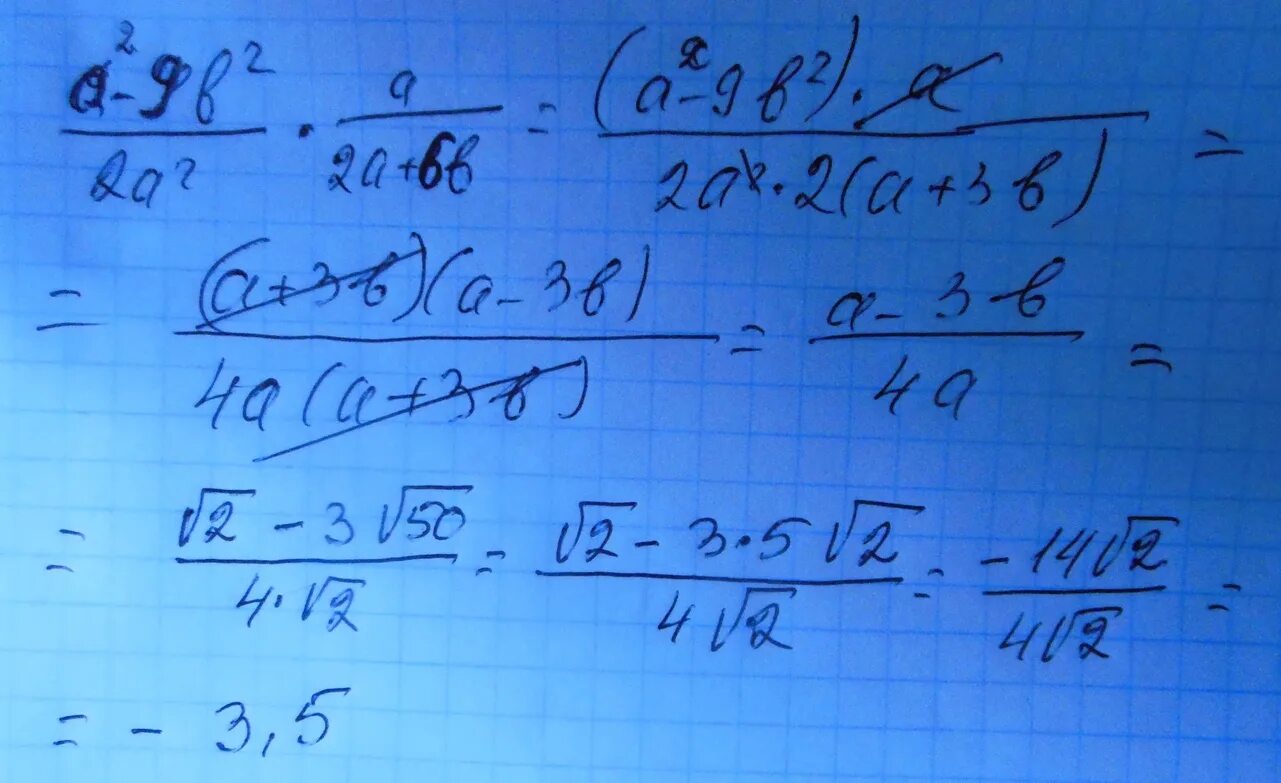 (a² - 9в²)/(2a²) · a/(2a+6в) = ((a² - 9в²) · a)/(2a² · 2(a+3в)) =
= ((a+3в)(a - 3в))/(4a(a+3в)) = (a - 3в)/(4a) =
= (√2 - 3√50)/(4·√2) = (√2 - 3·5√2)/(4√2) = (-14√2)/(4√2) =
= - 3,5